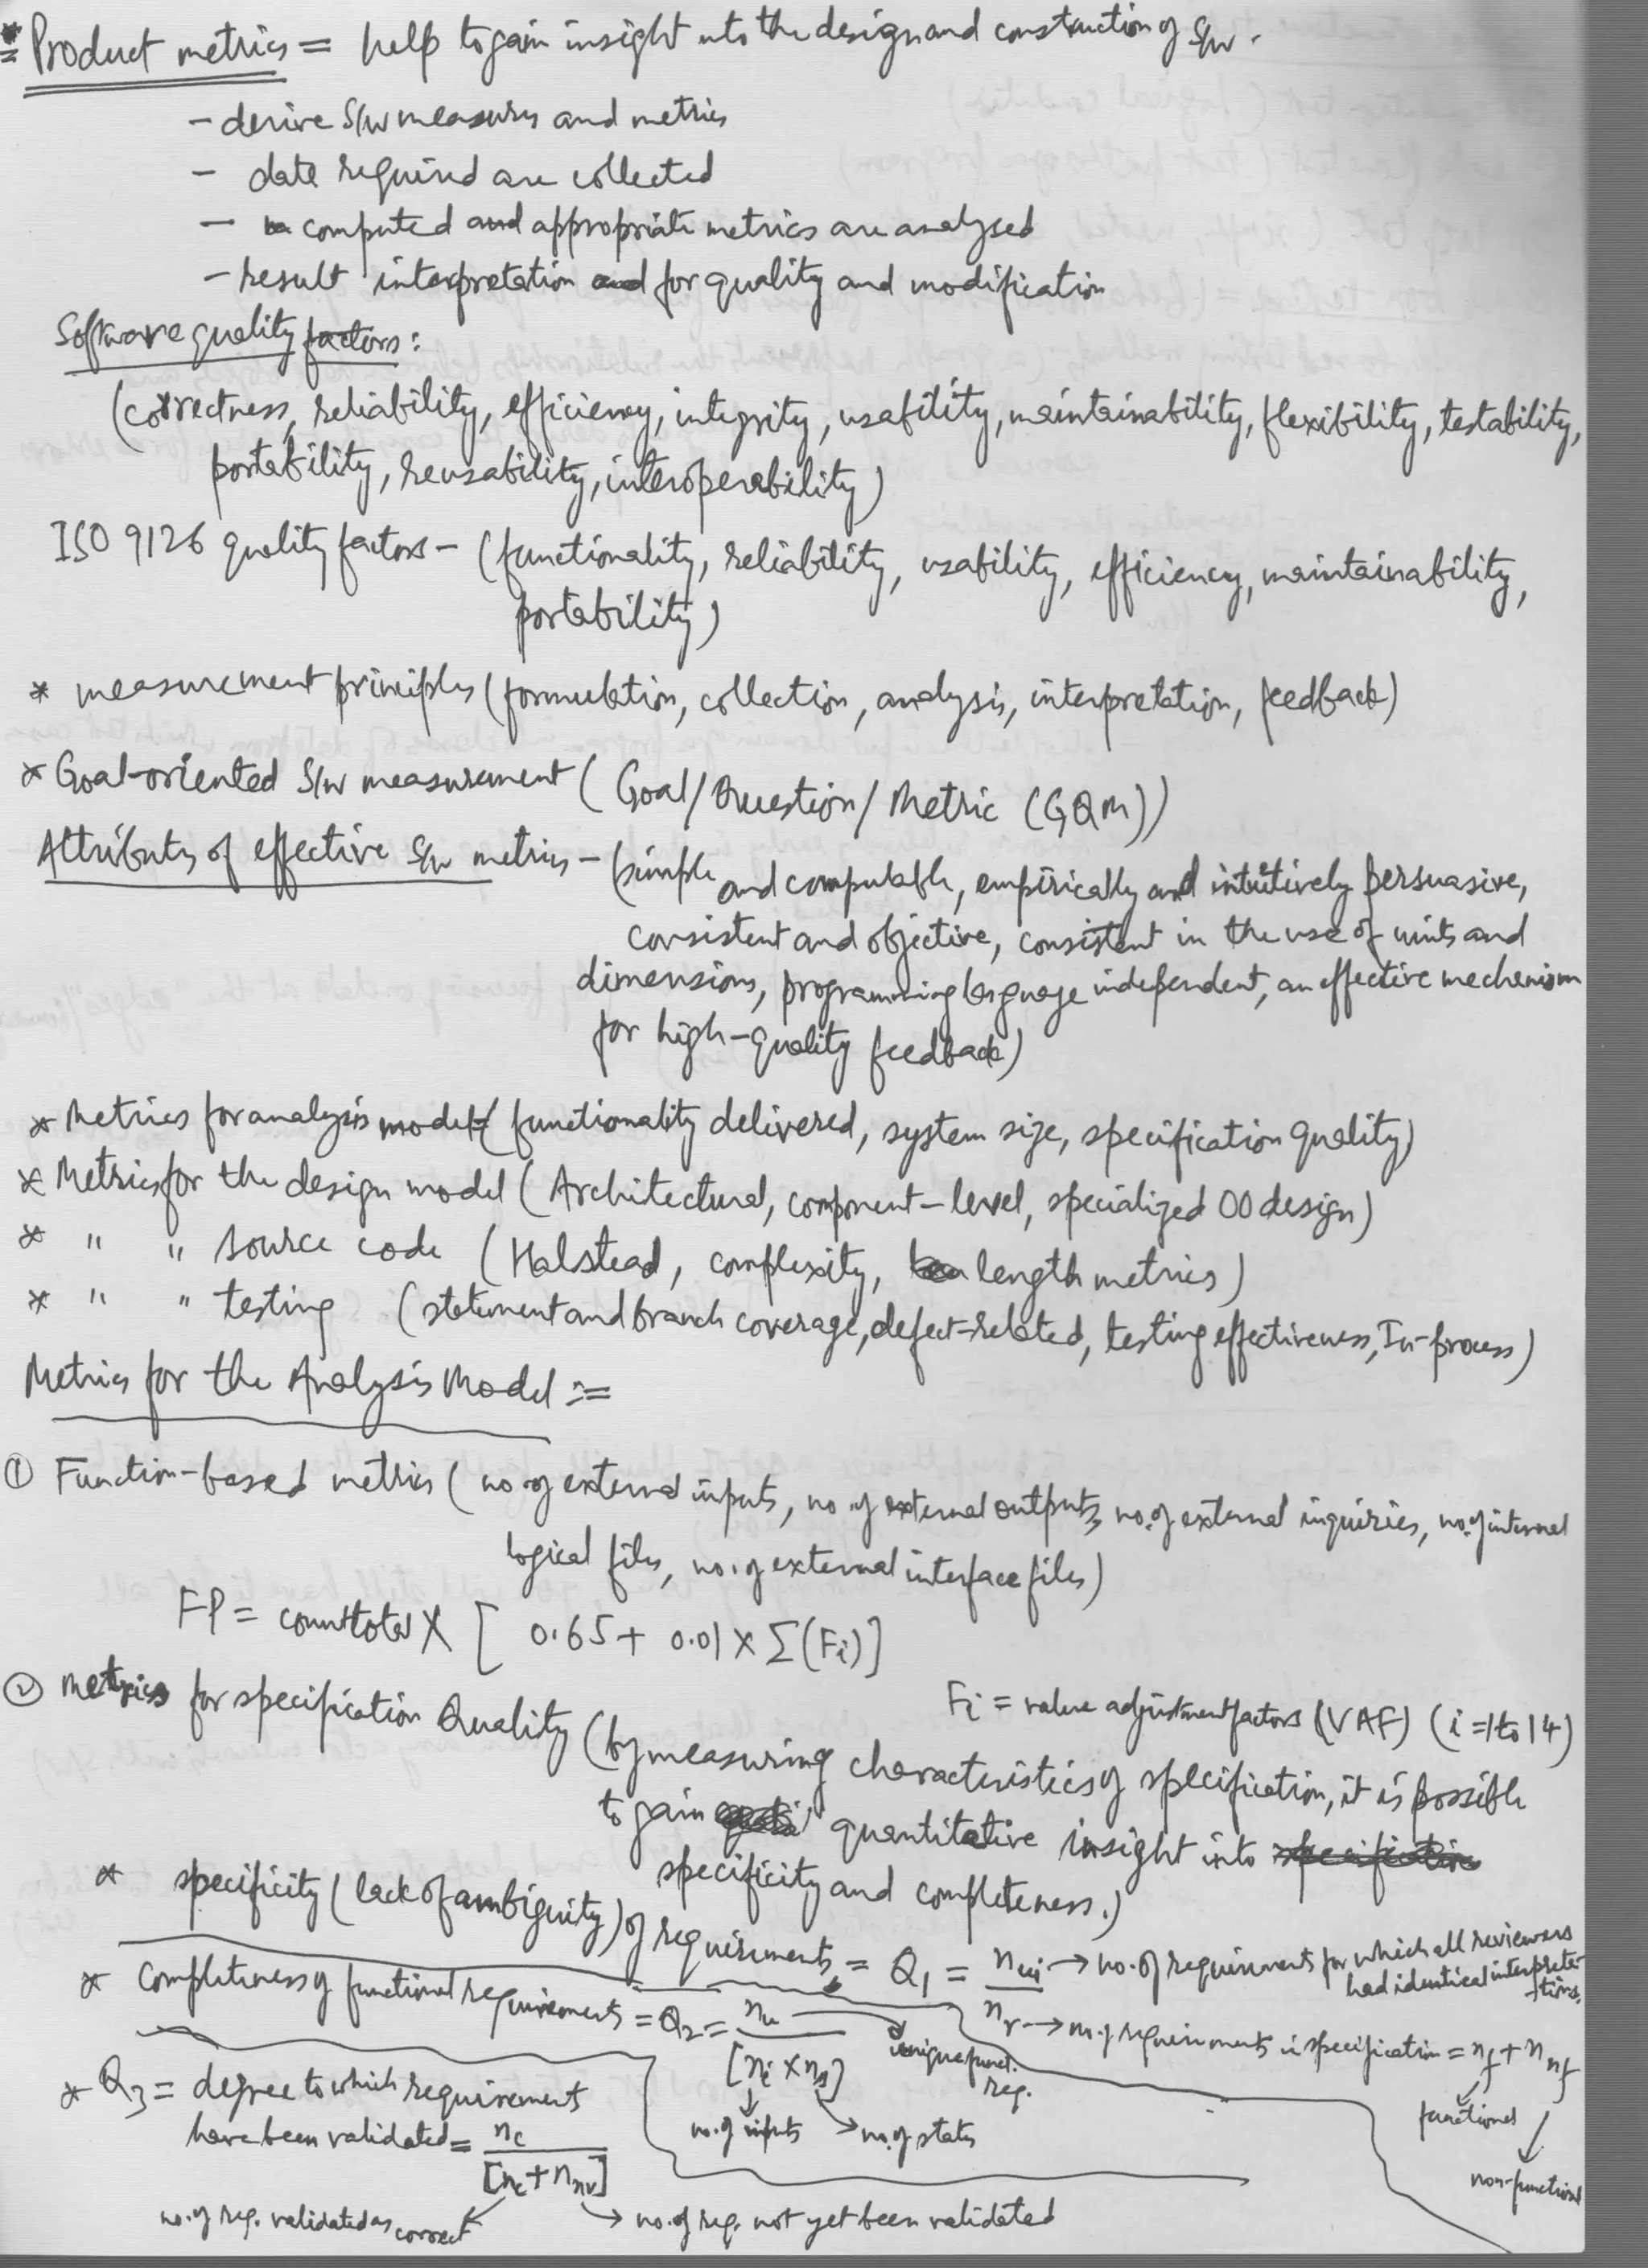 * Product metrics = help to gain insight into the design and construction of S/w.
- derive S/w measures and metrics
- date required are collected
- computed and appropriate metrics are analysed
- result interpretation for quality and modification
Software quality factors:
(correctness, reliability, efficiency, integrity, usability, maintainability, flexibility, testability,
portability, reusability, interoperability)
ISO 9126 quality factors - (functionality, reliability, usability, efficiency, maintainability,
portability)
* measurement principles (formulation, collection, analysis, interpretation, feedback)
* Goal-oriented S/w measurement (Goal/Question/Metric (GQM))
Attributes of effective S/w metrics - (simple and computable, empirically and intuitively persuasive,
consistent and objective, consistent in the use of units and
dimensions, programming language independent, an effective mechanism
for high-quality feedback)
* Metrics for analysis model (functionality delivered, system size, specification quality)
* Metrics for the design model (Architectural, component-level, specialized OO design)
* " " source code (Halstead, complexity, length metrics)
* " " testing (statement and branch coverage, defect-related, testing effectiveness, In-process)
Metrics for the Analysis Model :=
① Function-based metrics (no. of external inputs, no. of external outputs, no. of external inquiries, no. of internal
logical files, no. of external interface files)
FP = count total X [ 0.65 + 0.01 x Σ(Fi)]
Fi = value adjustment factors (VAF) (i = 1 to 14)
② Metrics for specification Quality (by measuring characteristics of specification, it is possible
to gain quantitative insight into
specificity and completeness.)
* specificity (lack of ambiguity) of requirements = Q1 = nui → no. of requirements for which all reviewers
had identical interpretations.
nr → no. of requirements in specification = nf + nnf
functional
non-functional
* Completeness of functional requirements = Q2 = nu
unique funct. req.
[ni x ns]
no. of inputs
no. of states
* Q3 = degree to which requirements
have been validated = nc
[nc + nnv]
no. of req. validated as correct
no. of req. not yet been validated